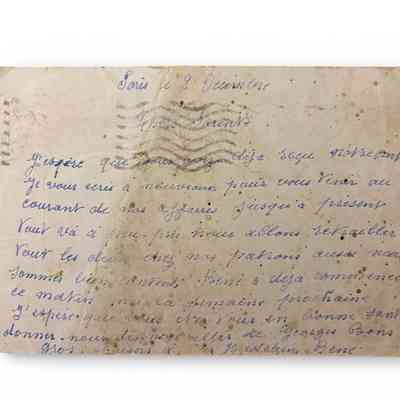 Paris le 8 Décembre
Chers Parents
J'espère que vous avez déja reçu notre
Je vous ecris a nouveau pour vous tenir au
courant de nos affaires jusqu'a présent
tout va a peu près nous allons retravailler
tout les deux chez nos patrons aussi nous
sommes bien content. René a déja commencé
ce matin moi la semaine prochaine
J'espère que vous etes tous en bonne santé
donner nous des nouvelles de Georges Bons
Gros Baisers René